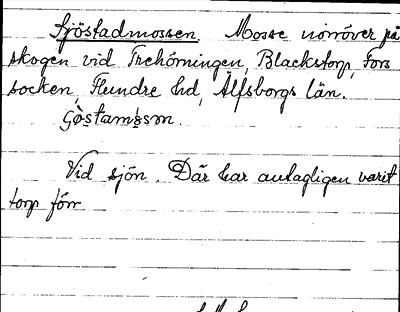 Sjöstadmossen. Mosse norröver på
skogen vid Trehörningen, Blackstorp, Fors
socken, Flundre hd, Älfsborgs län.
Vid sjön. Där har antagligen varit
torp förr